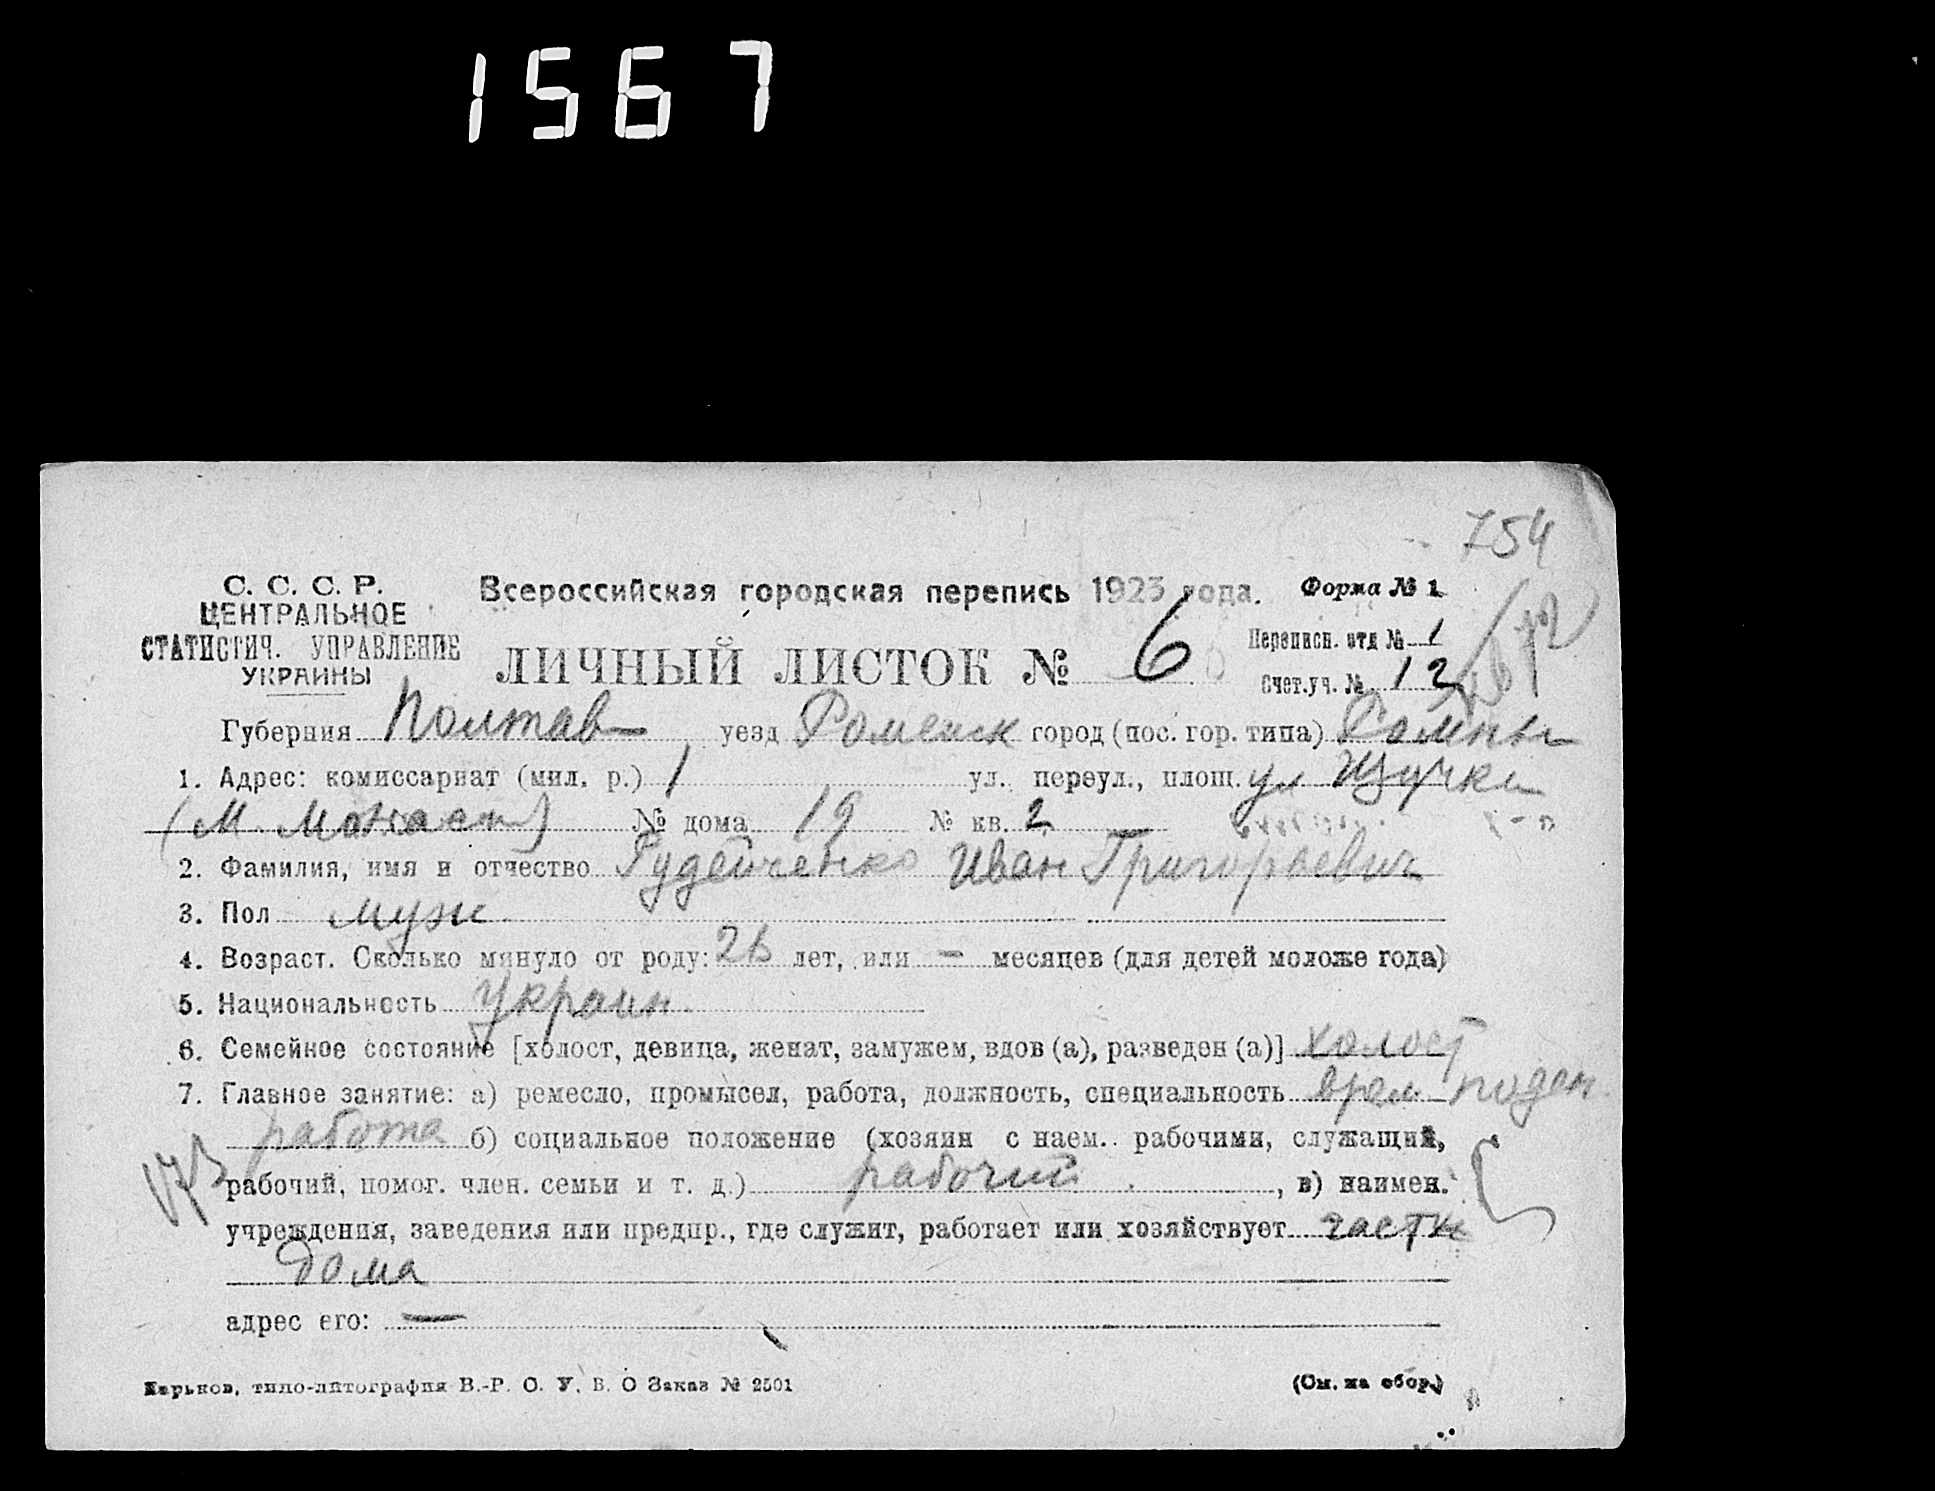 1567
754
С. С. С. Р.
ЦЕНТРАЛЬНОЕ
СТАТИСТИЧ. УПРАВЛЕНИЕ
УКРАИНЫ
Всероссийская городская перепись 1923 года. Форма № 1
ЛИЧНЫЙ ЛИСТОК № 6
Переписн. отд № 1
Счет.уч. № 12
Губерния Полтав уезд Роменск город (пос. гор. типа) Ромны
1. Адрес: комиссариат (мил. р.) 1 ул. переул., площ. ул
(М. Монаст) № дома 19 № кв. 2
2. Фамилия, имя и отчество Рудейченко Иван Григорьевич
3. Пол муж
4. Возраст. Сколько минуло от роду: лет, или – месяцев (для детей моложе года)
5. Национальность Украин
6. Семейное состояние [холост, девица, женат, замужем, вдов (а), разведен (а)] холост
7. Главное занятие: а) ремесло, промысел, работа, должность, специальность врем поден
работа б) социальное положение (хозяин с наем. рабочими, служащий,
173
рабочий, помог. член. семьи и т. д.) рабочий, в) наимен.
учреждения, заведения или предпр., где служит, работает или хозяйствует частн
дома
адрес его: —
Харьков, типо-литография В.-Р. О. У. В. О Заказ № 2501 (См. на обор.)